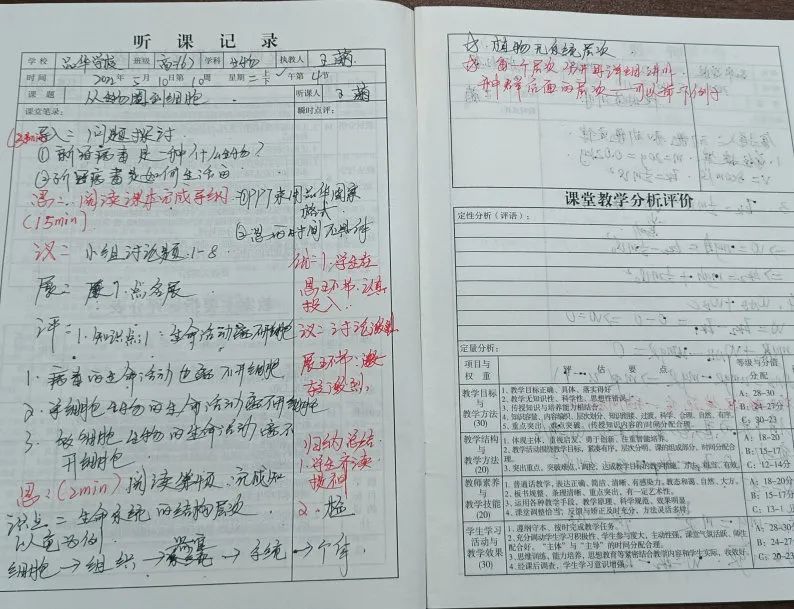 听课记录
学校 品华学校 班级 高一(6) 学科 生物 执教人 王菊
时间 2022年5月10日第10周 星期二 午第4节
课题 从生物圈到细胞 听课人 王菊
课堂笔录： 瞬时点评：
导入：问题探讨
①新冠病毒是一种什么生物？
②新冠病毒是如何生活的
思：阅读课本完成导纲
(15min)
①PPT未用品华国家
格式
②思的时间不具体
议：小组讨论题1-8
优：1.学生在
思环节认真
投入
展：展1.点名展
评：1.知识点1：生命活动离不开细胞
议：讨论激烈
1.病毒的生命活动也离不开细胞
展环节：
2.单细胞生物的生命活动离不开细胞
3.多细胞生物的生命活动离不
开细胞
归纳总结
1.学生齐读
思：(2min)阅读第 页，完成知
识点二 生命系统的结构层次
2.
以 为例
细胞→组织→器官→系统→个体
植物无系统层次
每个层次 讲
种群后面的层次 可以举下例子
课堂教学分析评价
定性分析（评语）：
定量分析：
项目与权重 评估要点 等级与分值分配
教学目标与教学方法(30)
1. 教学目标正确、具体、落实得好
2. 教学无知识性、科学性、思想性错误
3. 传授知识与培养能力相结合。
4. 知识容量、内容编织、层次划分、知识衔接、过渡，科学、合理、自然、有序。
5. 重点突出，难点突破。(传授知识内容的)时间分配合理。
A：28-30
B：24-27分
C：20-23
教学结构与教学方法(20)
1. 体现主体、重视启发、勇于创新、注重智能培养。
2. 教学活动围绕教学目标，紧凑有序、层次分明、课的组成部分，时间分配合理。
3. 突出重点、突破难点，
A：18-20
B：15-17
C：12-14分
教师素养与教学技能(20)
1. 普通话教学，表达正确、简洁、清晰、有感染力，教态和蔼、自然、大方。
2. 板书规整、条理清晰、重点突出、有一定艺术性。
3. 运用各种教学手段，教学原理、科学规范、效果明显
4. 课堂调整恰当，反馈与矫正及时充分、方法灵活多样。
A：18-20分
B：15-17分
学生学习活动与教学效果(30)
1. 遵纲守本、按时完成教学任务。
2. 充分调动学生学习积极性、学生参与度大、主动性强、课堂气氛活跃、师生配合好，"主体"与"主导"的时间分配合理。
3. 思维训练、能力培养、思想教育等紧密结合教学内容和学生实际，收效好。
4. 经课后调查，学生学习意识增强。
A：28-30分
B：24-27
C：20-23